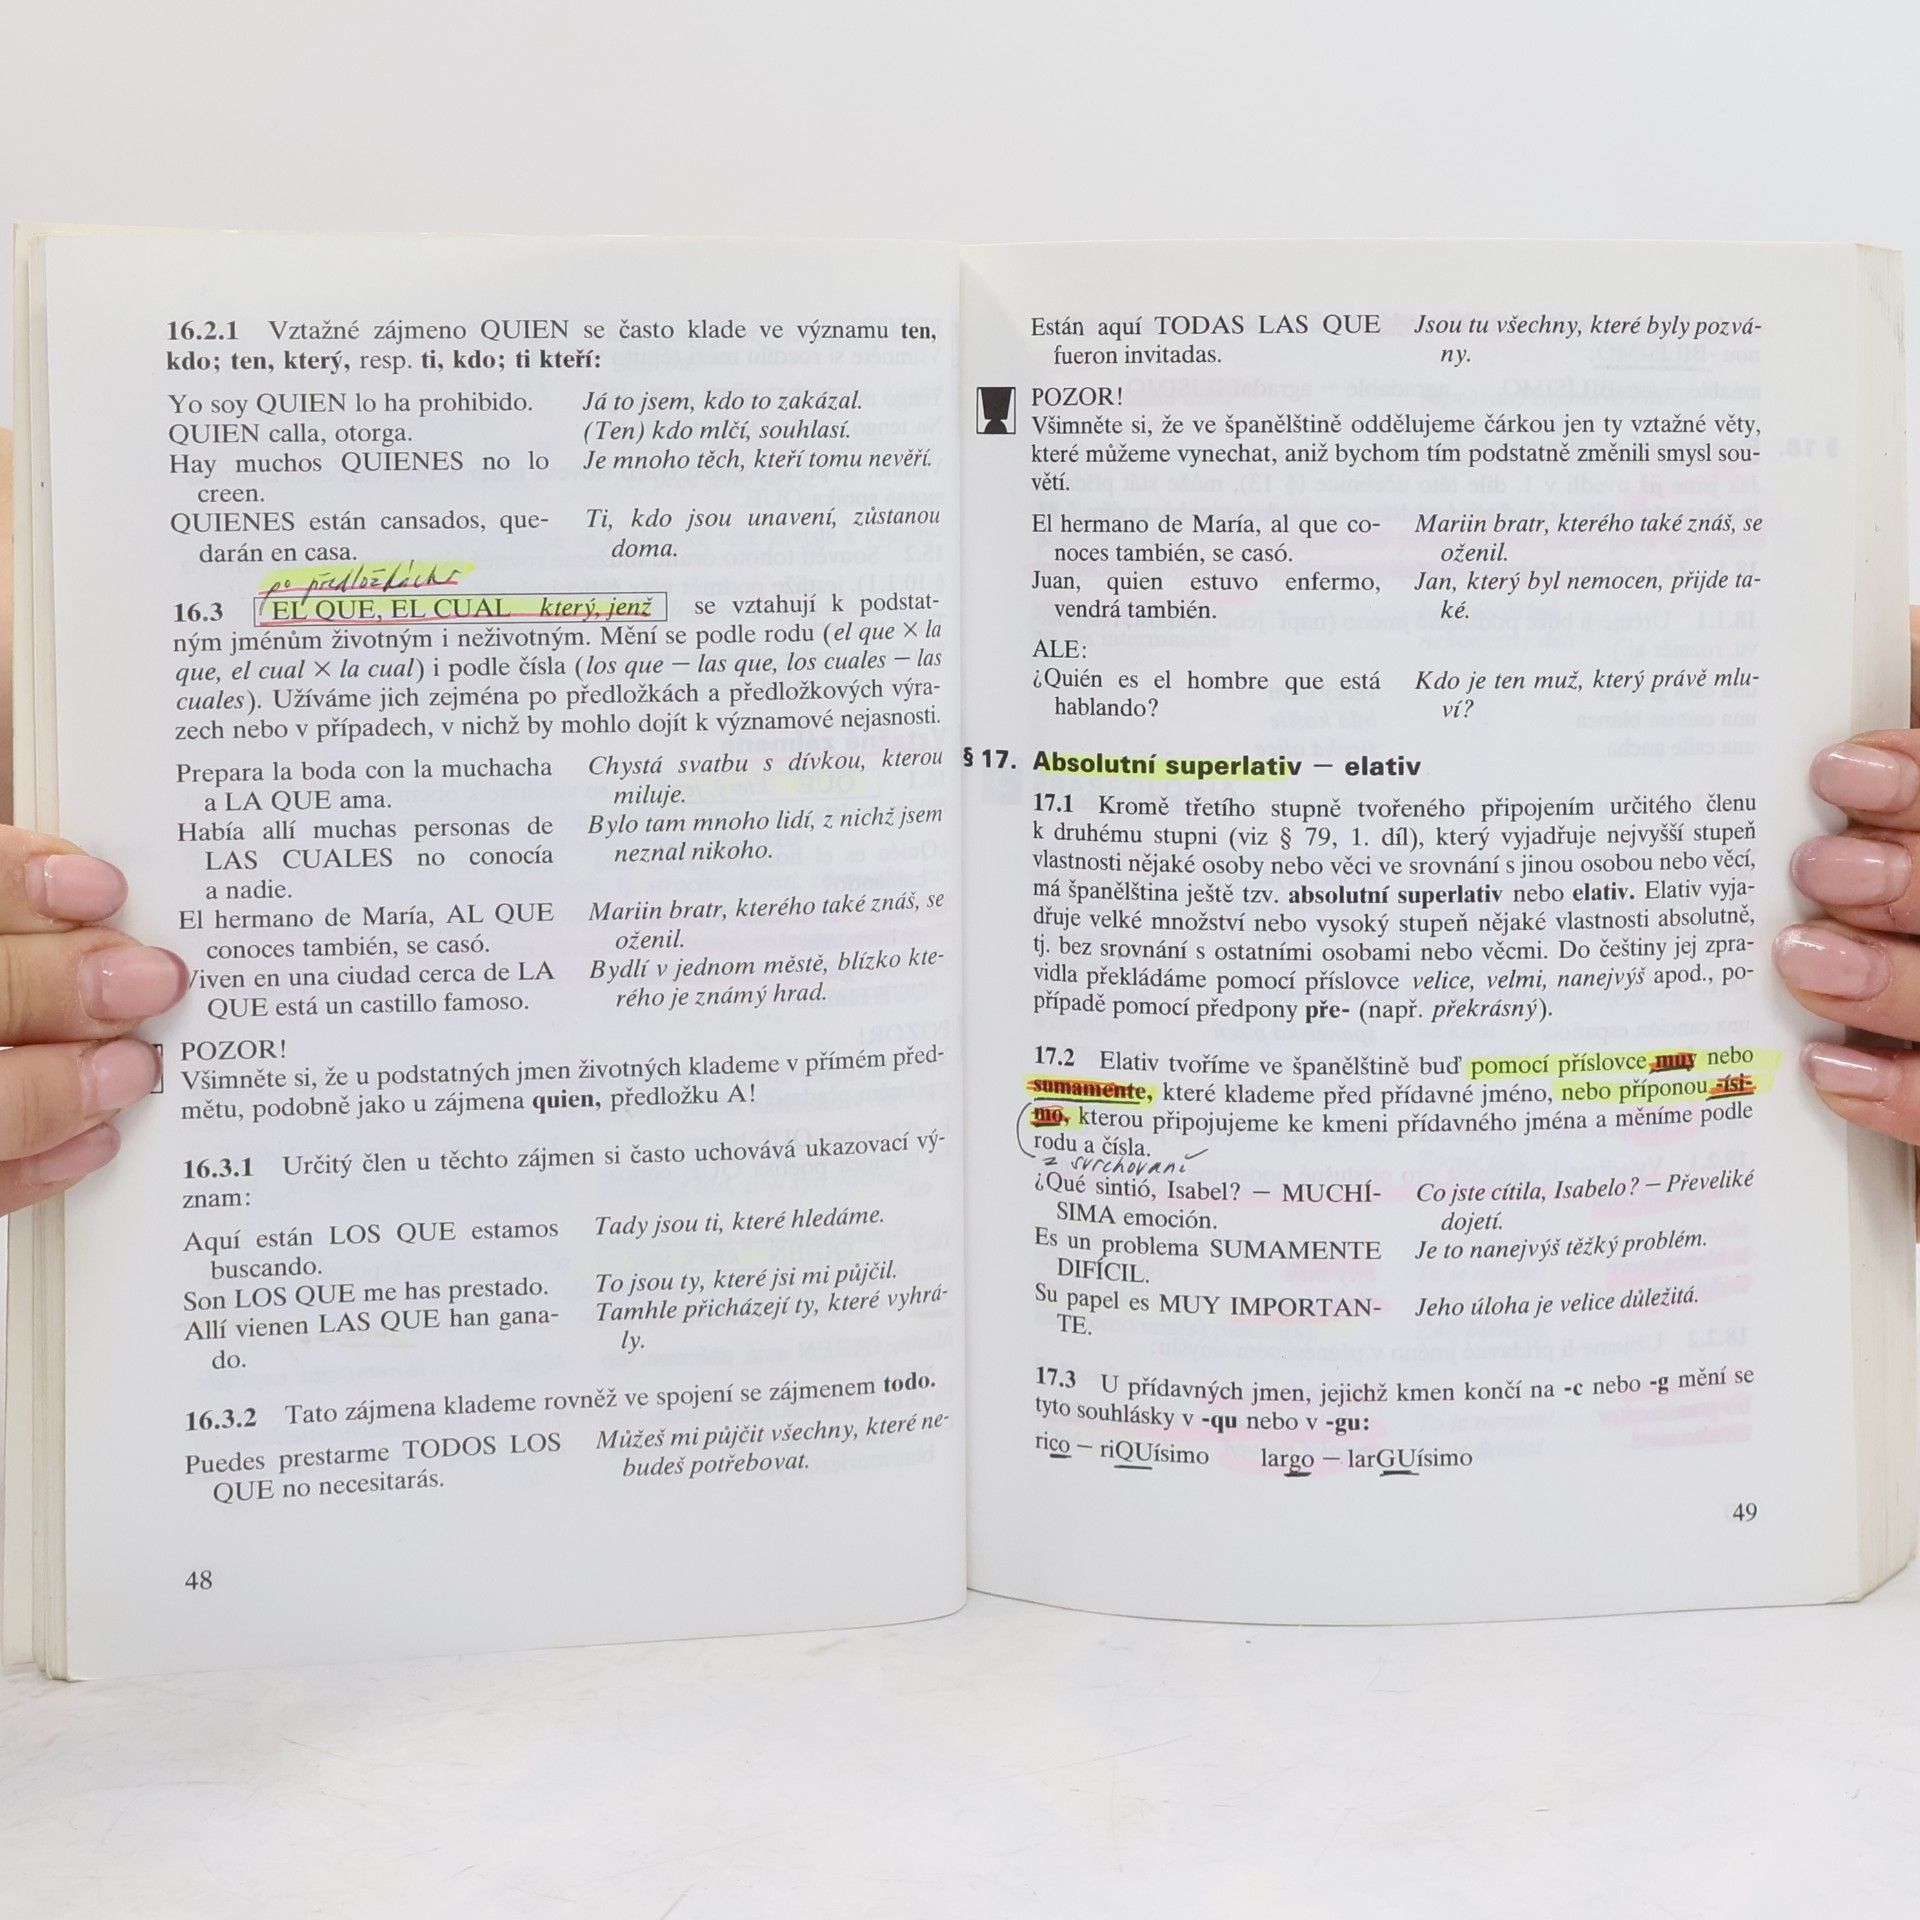 16.2.1 Vztažné zájmeno QUIEN se často klade ve významu ten,
kdo; ten, který, resp. ti, kdo; ti kteří:
Yo soy QUIEN lo ha prohibido. Já to jsem, kdo to zakázal.
QUIEN calla, otorga. (Ten) kdo mlčí, souhlasí.
Hay muchos QUIENES no lo Je mnoho těch, kteří tomu nevěří.
creen.
QUIENES están cansados, que- Ti, kdo jsou unavení, zůstanou
darán en casa. doma.
po předložkách
16.3 EL QUE, EL CUAL který, jenž se vztahují k podstat-
ným jménům životným i neživotným. Mění se podle rodu (el que × la
que, el cual × la cual) i podle čísla (los que – las que, los cuales – las
cuales). Užíváme jich zejména po předložkách a předložkových výra-
zech nebo v případech, v nichž by mohlo dojít k významové nejasnosti.
Prepara la boda con la muchacha Chystá svatbu s dívkou, kterou
a LA QUE ama. miluje.
Había allí muchas personas de Bylo tam mnoho lidí, z nichž jsem
LAS CUALES no conocía neznal nikoho.
a nadie.
El hermano de María, AL QUE Mariin bratr, kterého také znáš, se
conoces también, se casó. oženil.
Viven en una ciudad cerca de LA Bydlí v jednom městě, blízko kte-
QUE está un castillo famoso. rého je známý hrad.
POZOR!
Všimněte si, že u podstatných jmen životných klademe v přímém před-
mětu, podobně jako u zájmena quien, předložku A!
16.3.1 Určitý člen u těchto zájmen si často uchovává ukazovací vý-
znam:
Aquí están LOS QUE estamos Tady jsou ti, které hledáme.
buscando.
Son LOS QUE me has prestado. To jsou ty, které jsi mi půjčil.
Allí vienen LAS QUE han gana- Tamhle přicházejí ty, které vyhrá-
do. ly.
16.3.2 Tato zájmena klademe rovněž ve spojení se zájmenem todo.
Puedes prestarme TODOS LOS Můžeš mi půjčit všechny, které ne-
QUE no necesitarás. budeš potřebovat.
48
Están aquí TODAS LAS QUE Jsou tu všechny, které byly pozvá-
fueron invitadas. ny.
POZOR!
Všimněte si, že ve španělštině oddělujeme čárkou jen ty vztažné věty,
které můžeme vynechat, aniž bychom tím podstatně změnili smysl sou-
větí.
El hermano de María, al que co- Mariin bratr, kterého také znáš, se
noces también, se casó. oženil.
Juan, quien estuvo enfermo, Jan, který byl nemocen, přijde ta-
vendrá también. ké.
ALE:
¿Quién es el hombre que está Kdo je ten muž, který právě mlu-
hablando? ví?
§ 17. Absolutní superlativ – elativ
17.1 Kromě třetího stupně tvořeného připojením určitého členu
k druhému stupni (viz § 79, 1. díl), který vyjadřuje nejvyšší stupeň
vlastnosti nějaké osoby nebo věci ve srovnání s jinou osobou nebo věcí,
má španělština ještě tzv. absolutní superlativ nebo elativ. Elativ vyja-
dřuje velké množství nebo vysoký stupeň nějaké vlastnosti absolutně,
tj. bez srovnání s ostatními osobami nebo věcmi. Do češtiny jej zpra-
vidla překládáme pomocí příslovce velice, velmi, nanejvýš apod., po-
případě pomocí předpony pře- (např. překrásný).
17.2 Elativ tvoříme ve španělštině buď pomocí příslovce muy nebo
sumamente, které klademe před přídavné jméno, nebo příponou -ísi-
mo, kterou připojujeme ke kmeni přídavného jména a měníme podle
rodu a čísla.
z svrchovaní
¿Qué sintió, Isabel? – MUCHÍ- Co jste cítila, Isabelo? – Převeliké
SIMA emoción. dojetí.
Es un problema SUMAMENTE Je to nanejvýš těžký problém.
DIFÍCIL.
Su papel es MUY IMPORTAN- Jeho úloha je velice důležitá.
TE.
17.3 U přídavných jmen, jejichž kmen končí na -c nebo -g mění se
tyto souhlásky v -qu nebo v -gu:
rico – riQUísimo largo – larGUísimo
49